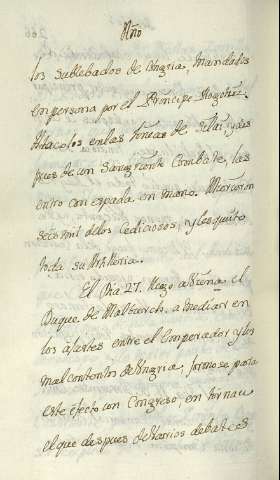 Año
los sublebados de Ungria, mandados
en persona por el Príncipe Ragotzi.
Atacolos en las lineas de y des
pues de un Sangriento Combate, las
entro con espada en mano. Murieron
seis mil de los Cediciosos, y les quito
toda su Artilleria.
El Dia 27. llego a Viena el
Duque de Malburch, a mediar en
los ajustes entre el Emperador, y los
mal contentos de Ungria, formose para
este efecto un Congreso, en Tirnau
el que despues de Varios debates